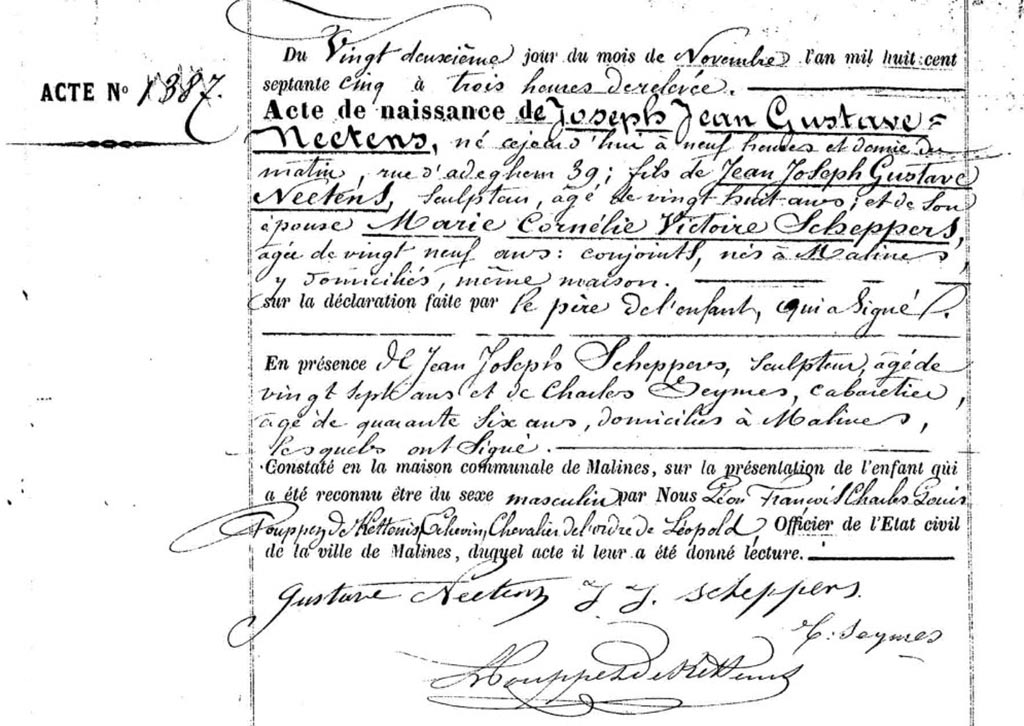 ACTE N° 1387.
Du Vingt deuxième jour du mois de Novembre l'an mil huit cent
septante cinq à trois heures de relevée.
Acte de naissance de Joseph Jean Gustave=
Neetens, né cejourd'hui à neuf heures et demie du
matin, rue d'adeghem 39; fils de Jean Joseph Gustave
Neetens, sculpteur, âgé de vingt huit ans; et de son
épouse Marie Cornélie Victoire Scheppers,
agée de vingt neuf ans: conjoints, nés à Malines,
y domiciliés, même maison.
sur la déclaration faite par le père de l'enfant, qui a signé.
En présence de Jean Joseph Scheppers, sculpteur, âgé de
vingt sept ans et de Charles Seymes, cabaretier,
âgé de quarante six ans, domiciliés à Malines,
lesquels ont signé.
Constaté en la maison communale de Malines, sur la présentation de l'enfant qui
a été reconnu être du sexe masculin par Nous Léon François Charles Louis
Pouppez de Kettenis, Echevin, Chevalier de l'ordre de Léopold, Officier de l'Etat civil
de la ville de Malines, duquel acte il leur a été donné lecture.
Gustave Neetens J. J. Scheppers.
C. Seymes
LPouppez de Kettenis